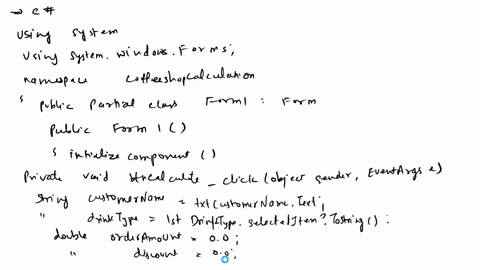 → C#
using System
using System.Windows.Forms;
namespace CoffeeshopCalculation
{ public Partial class Form1 : Form
public Form 1 ()
{ initialize component ()
Private void btncalculate _ click (object sender, EventArgs e)
String customerName = txtCustomerName.Text;
" drinkType = lst DrinkType. selectedItem?.ToString() :
double orderAmount = 0.0 ;
" discount = 0.0 ;